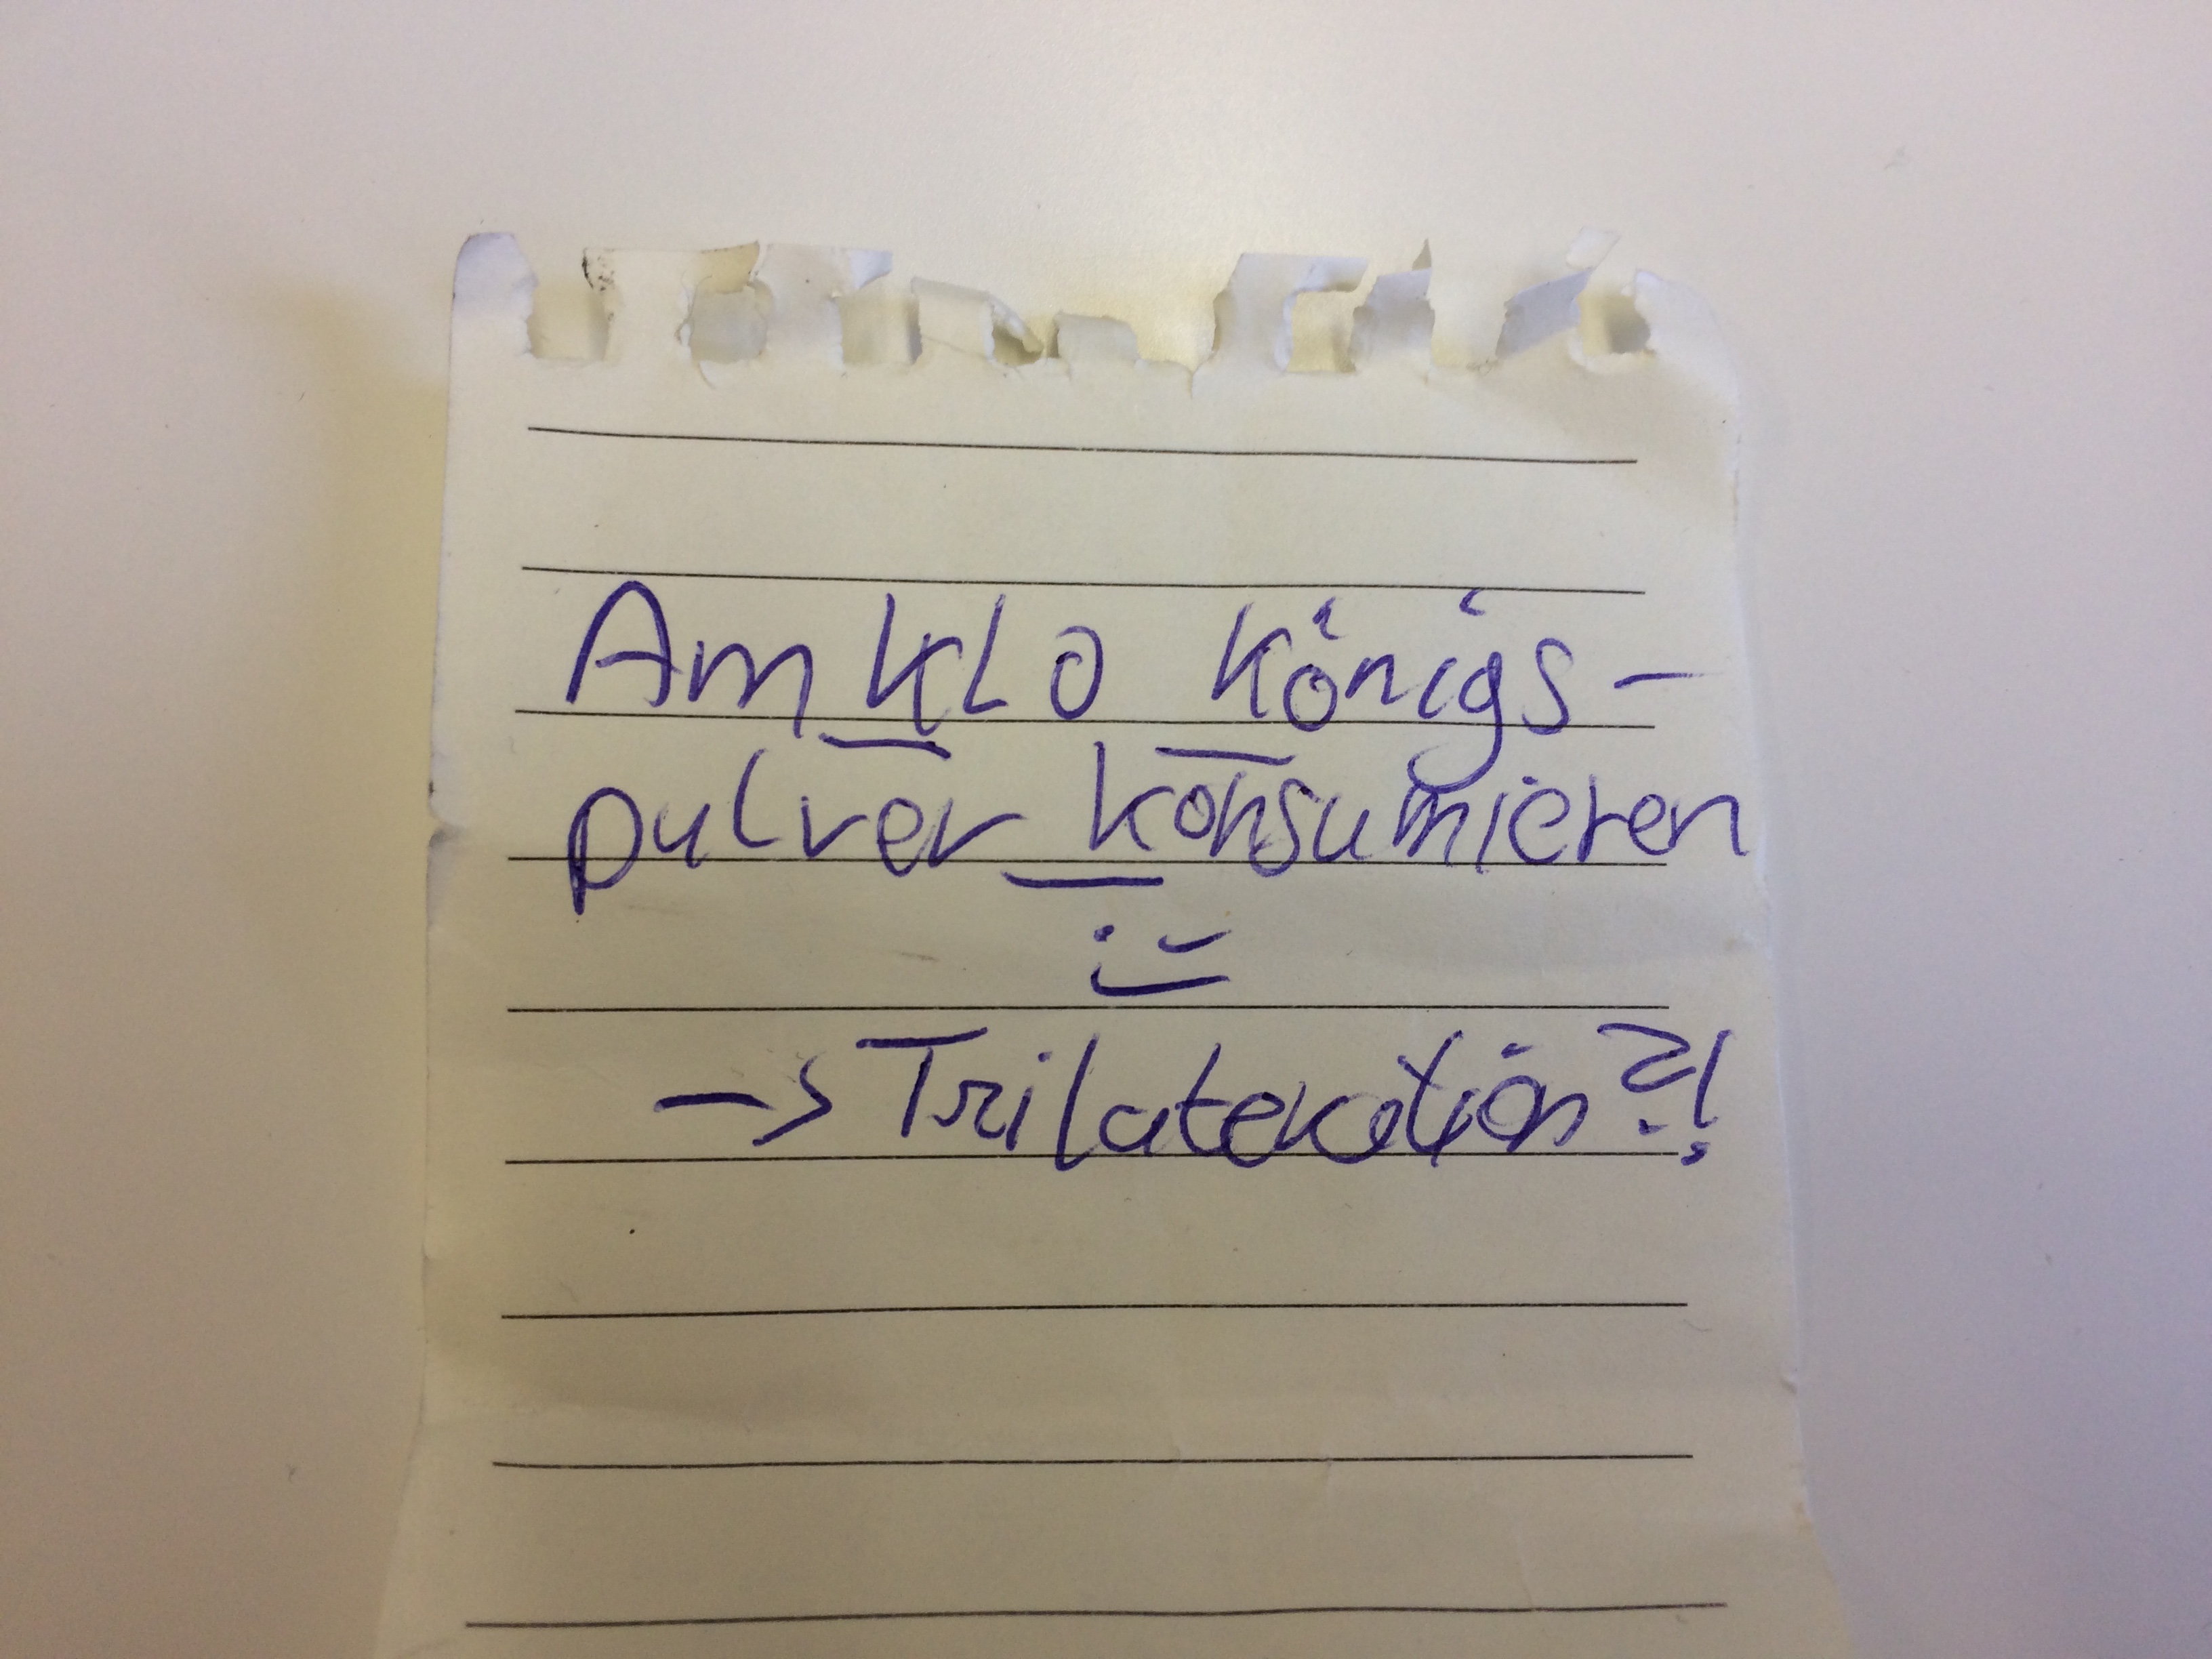 Am Klo Königs-
pulver konsumieren
-> Trilateration?!